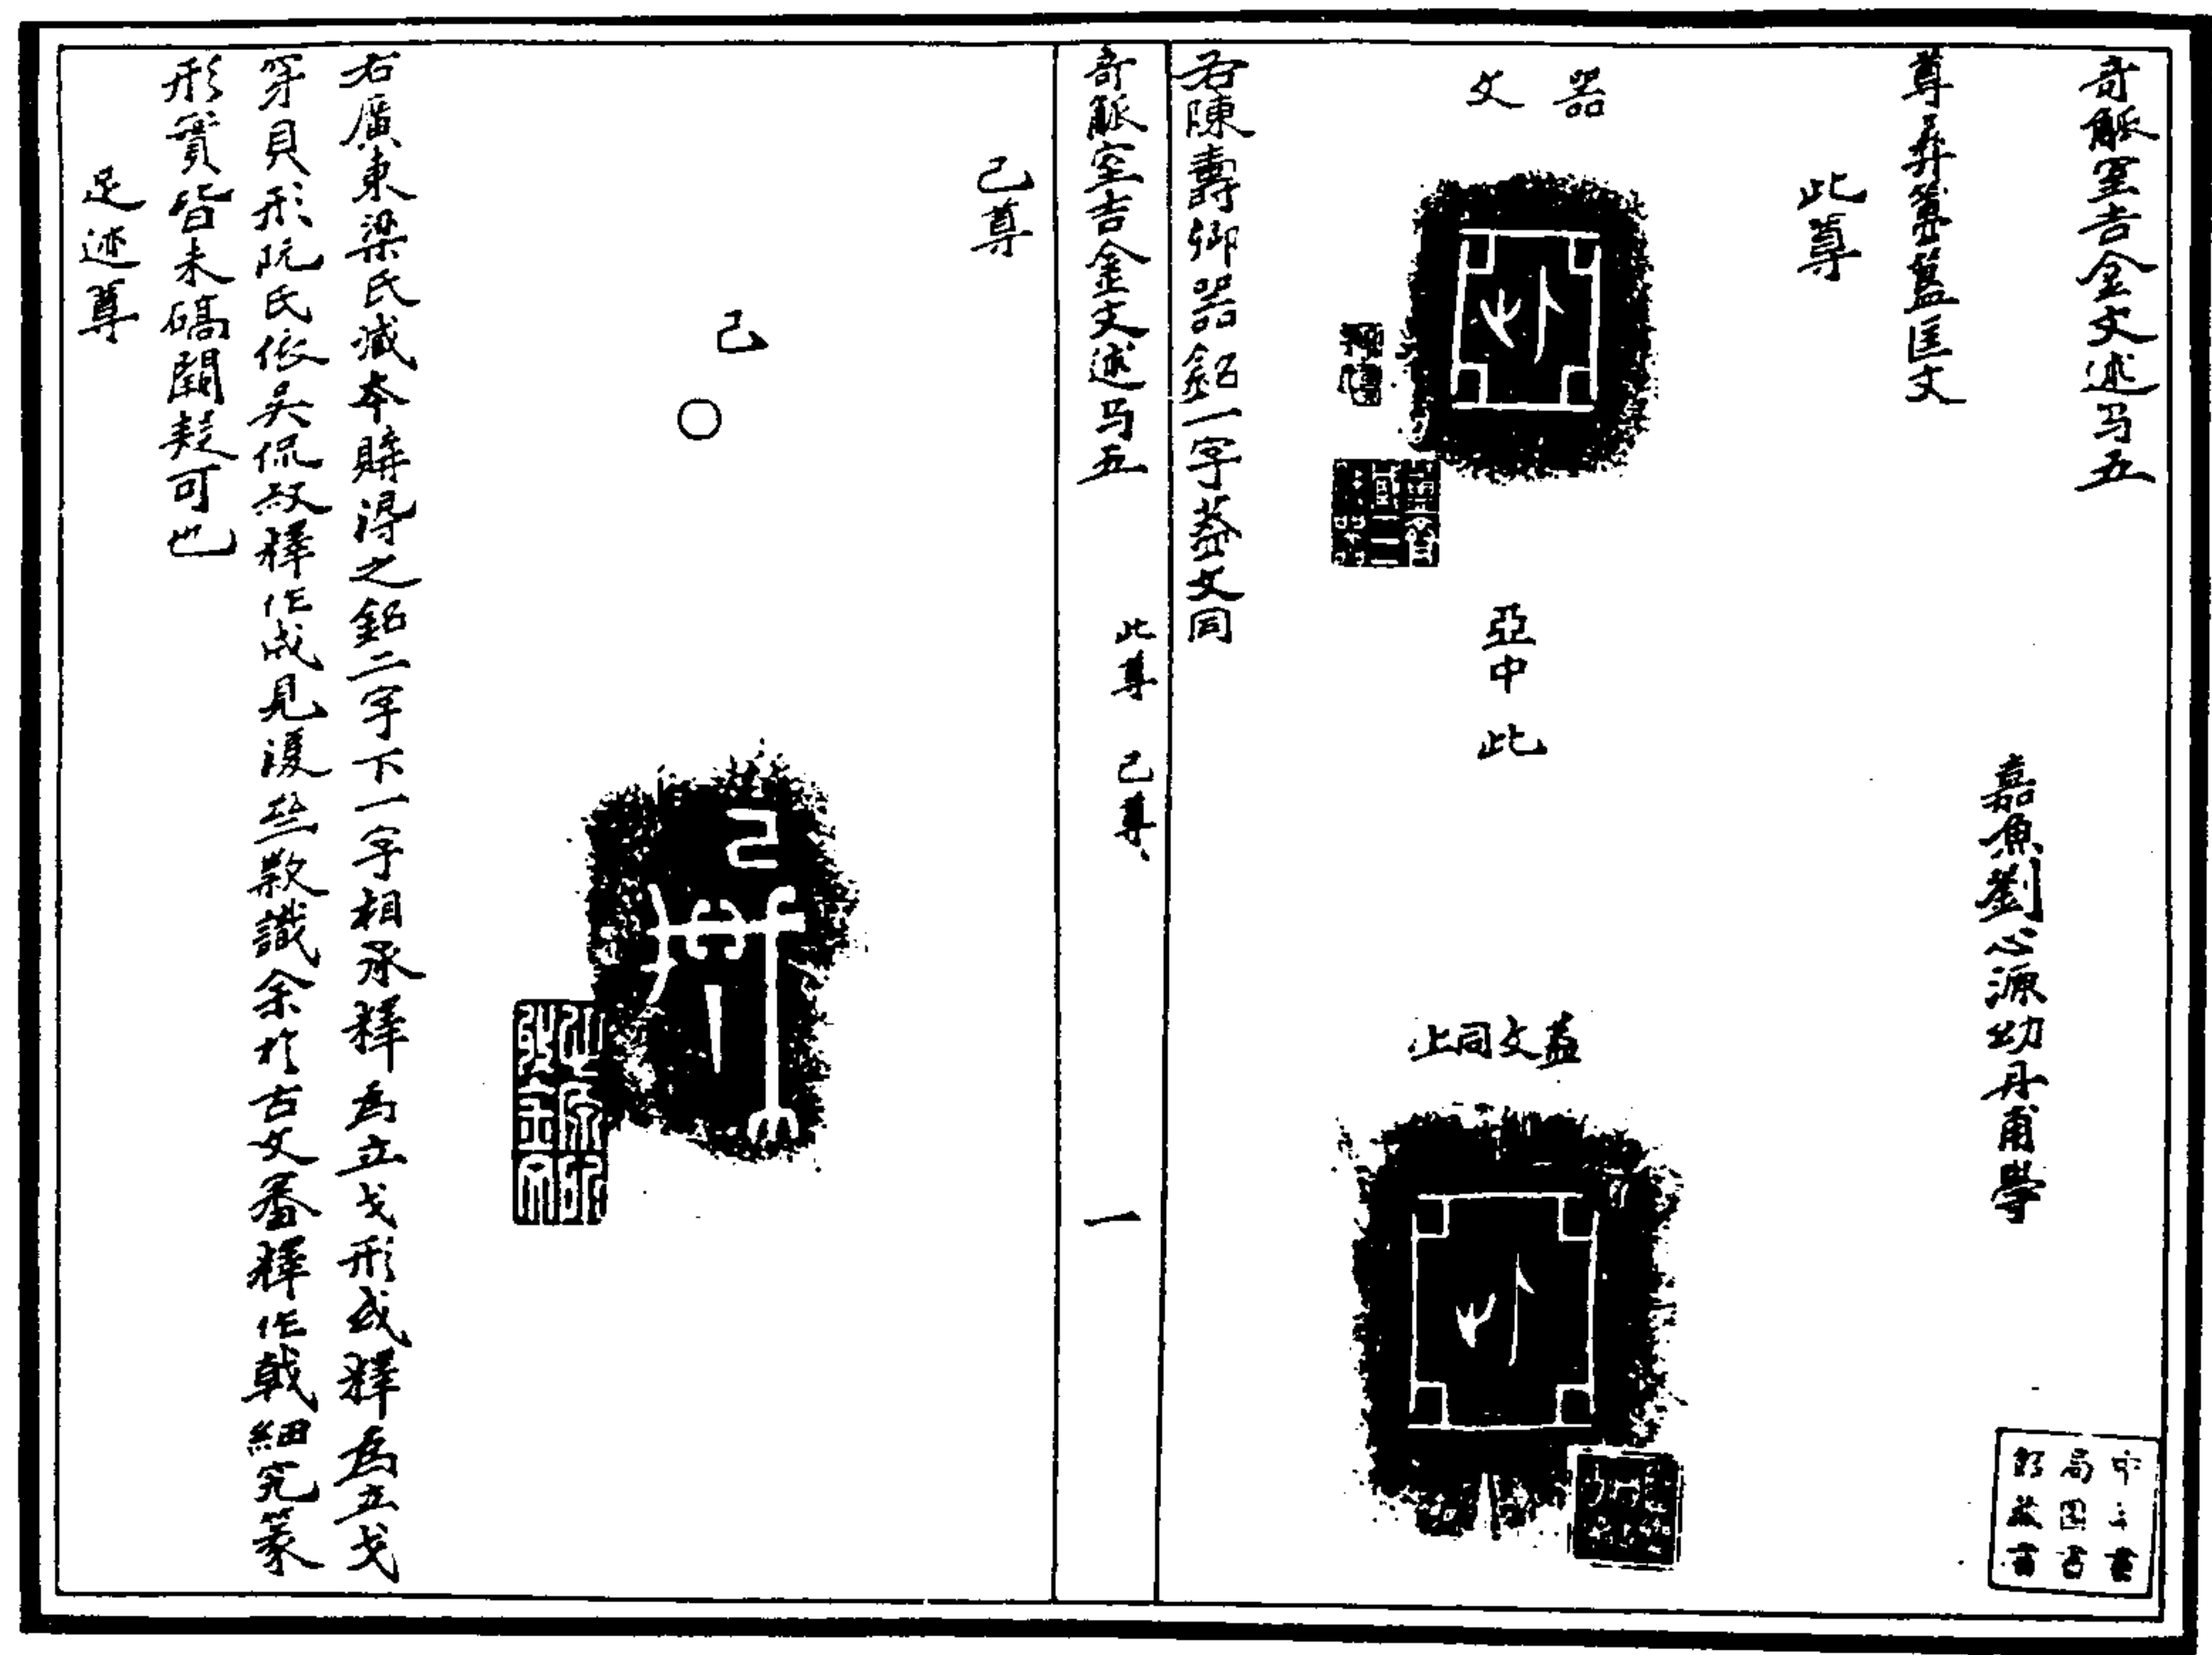 奇觚室吉金文述弓五
嘉魚劉心源幼丹甫學
尊彝簠簋盨匡文
此尊
器文
亞中 此
蓋文同上
右陳壽卿器銘一字蓋文同
奇觚室吉金文述弓五 此尊 己尊 一
己尊
己 〇
右廣東梁氏臧本購得之銘二字下一字相承釋爲立戈形或釋爲立戈
穿貝形阮氏依吳侃叔釋作戉見積古款識余於古文審釋作戟細究篆
形實皆未碻闕疑可也
足迹尊
中華書局圖書館藏書